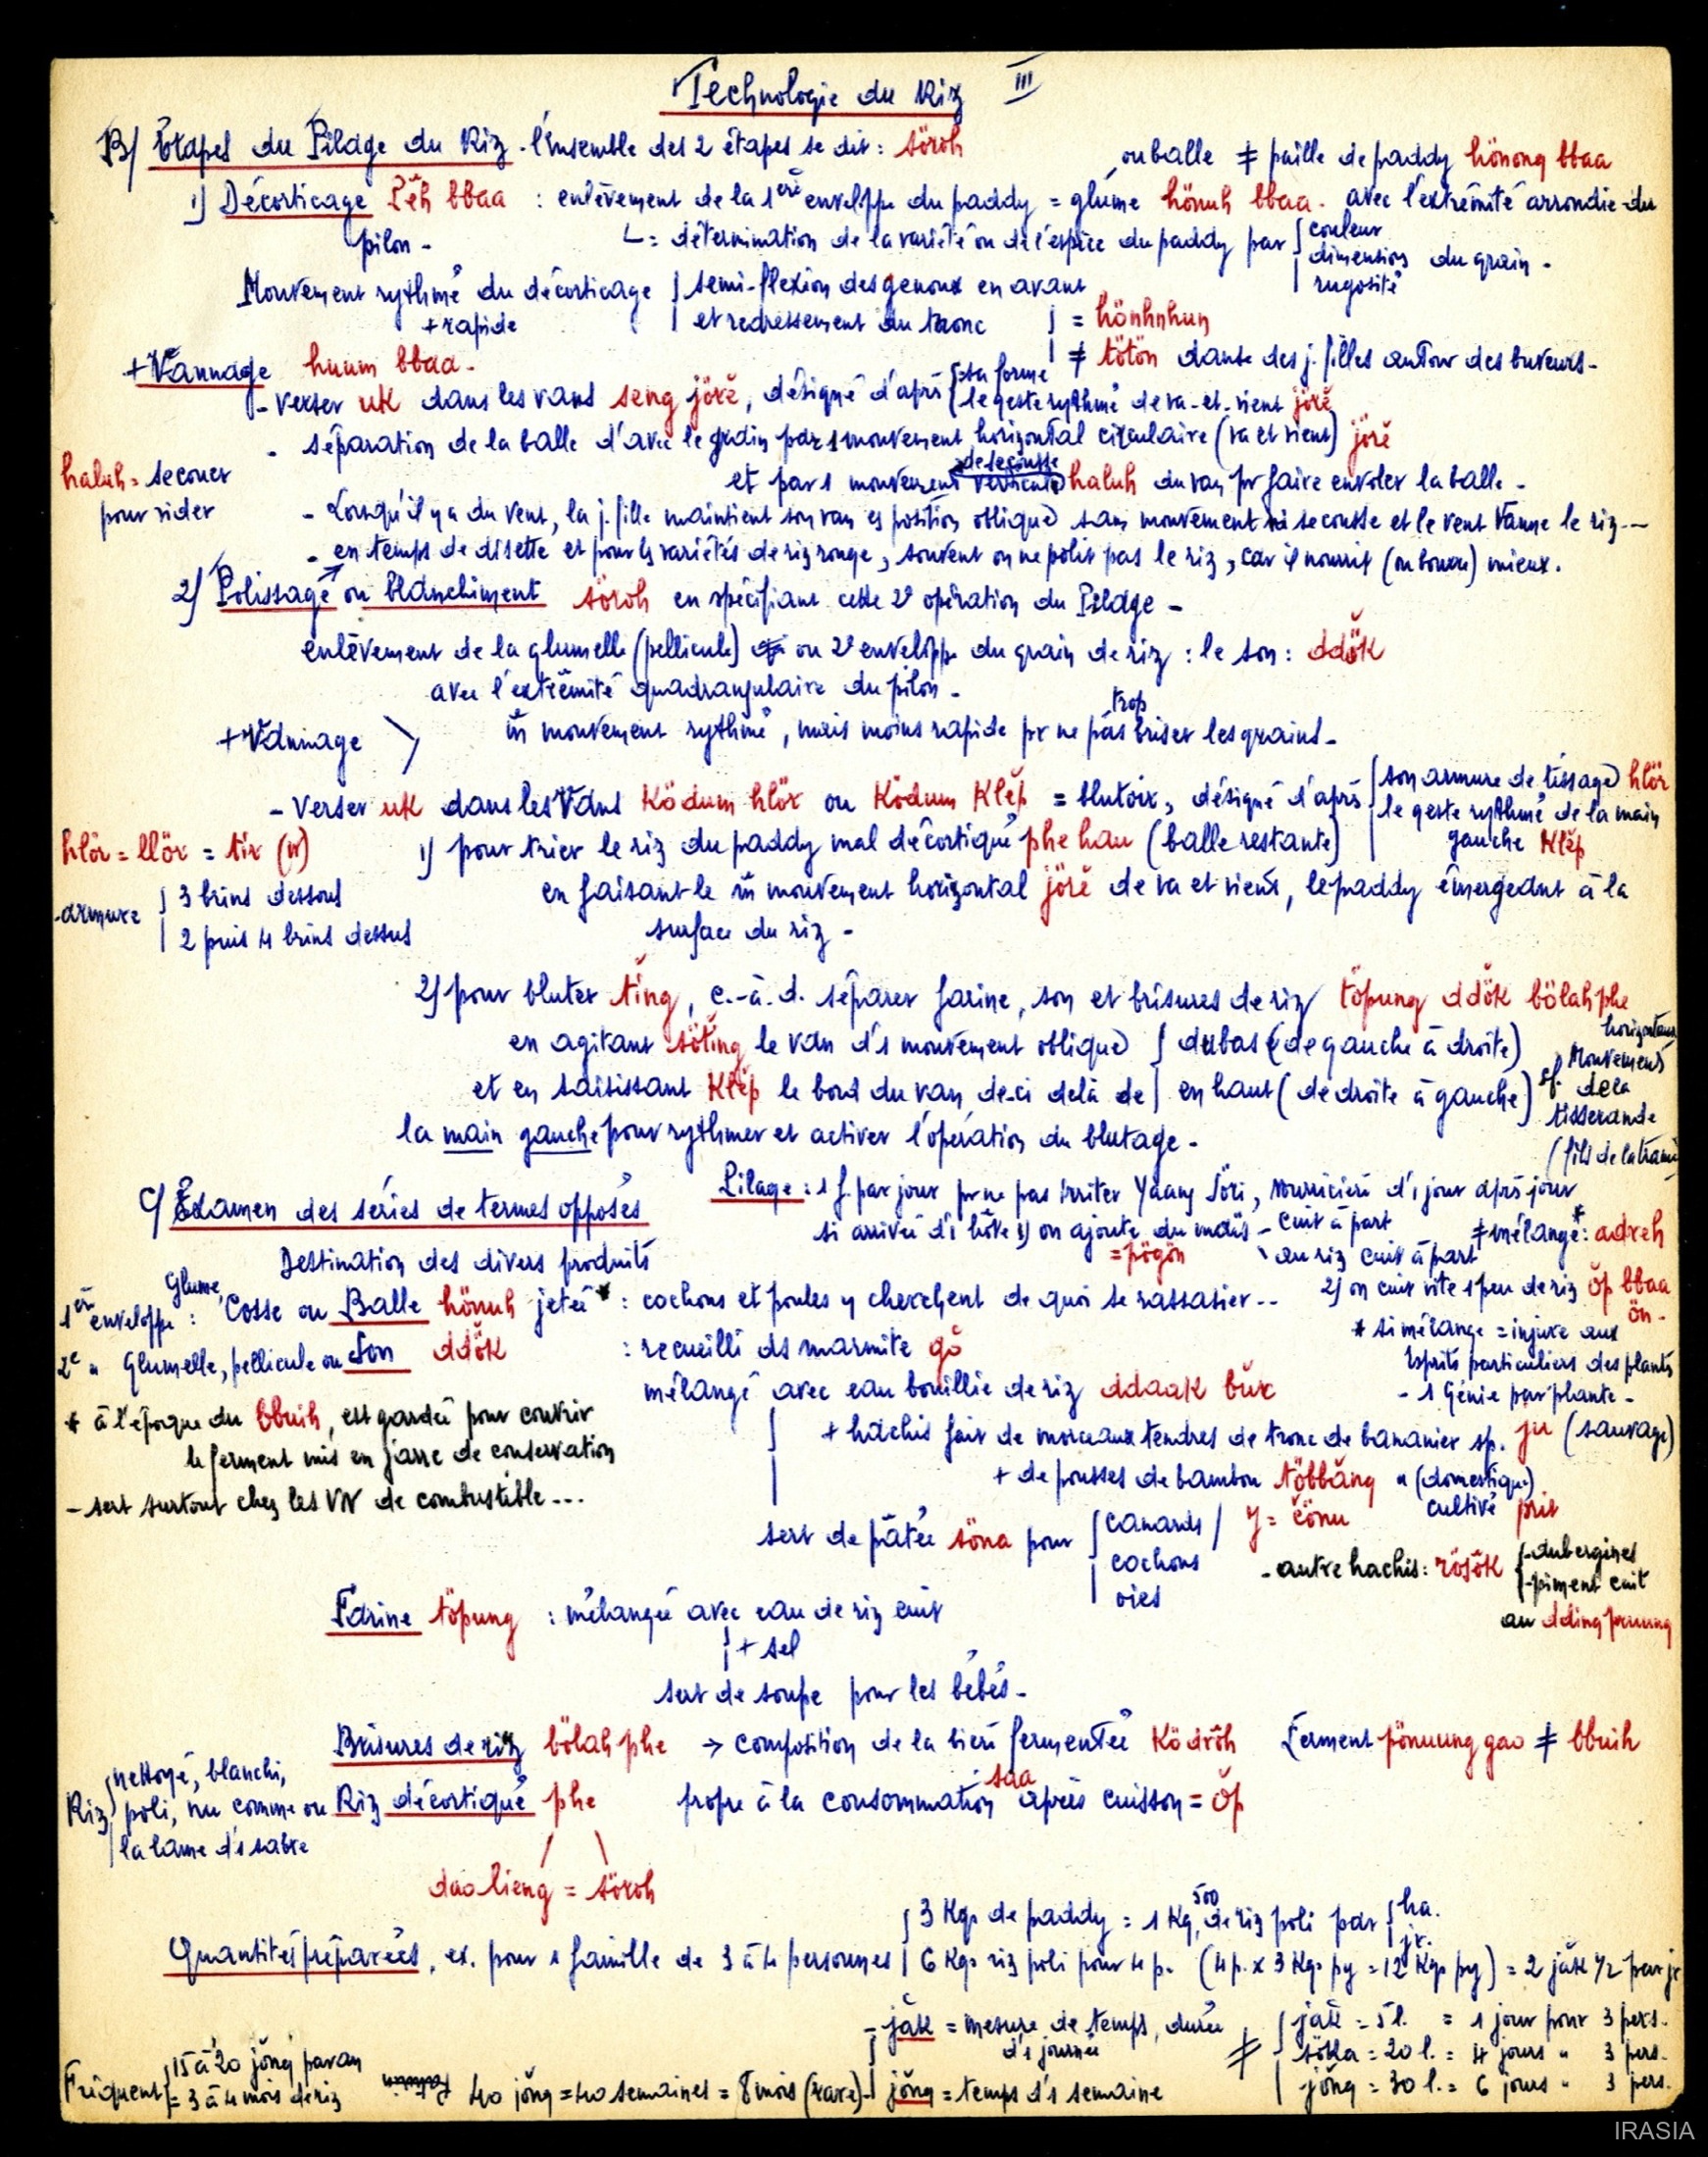 Technologie du Riz III
B/ Étapes du Pilage du Riz - l'ensemble des 2 étapes se dit : söroh
ou balle ≠ paille de paddy hönong bbaa
1) Décorticage Pĕh bbaa : enlèvement de la 1ère enveloppe du paddy = glume hönuh bbaa - avec l'extrémité arrondie du
pilon -
= détermination de la variété ou de l'espèce du paddy par { couleur
dimension du grain -
rugosité
Mouvement rythmé du décorticage { semi-flexion des genoux en avant
+ rapide et redressement du tronc = hönhnhun
≠ tötön danse des j. filles autour des buveurs -
+ Vannage huum bbaa -
- verser uk dans les vans seng jörĕ, désigné d'après { sa forme
le geste rythmé de va-et-vient jörĕ
- séparation de la balle d'avec le grain par 1 mouvement horizontal circulaire (va et vient) jörĕ
de secousse
et par 1 mouvement vertical haluh du van pr faire envoler la balle -
haluh = secouer
pour vider
- Lorsqu'il y a du vent, la j. fille maintient son van en position oblique sans mouvement ni secousse et le vent vanne le riz --
- en temps de disette et pour les variétés de riz rouge, souvent on ne polit pas le riz, car il nourrit (ou bourre) mieux.
2) Polissage ou blanchiment söroh en spécifiant cette 2e opération du Pilage -
enlèvement de la glumelle (pellicule) ou 2e enveloppe du grain de riz : le son : ddŏk
avec l'extrémité quadrangulaire du pilon -
m̄ mouvement rythmé, mais moins rapide pr ne pas trop briser les grains -
+ Vannage
- verser uk dans les vans Ködum hlör ou Ködum Klĕp = blutoir, désigné d'après { son armure de tissage hlör
le geste rythmé de la main
gauche Klĕp
hlör = llör = tir (v)
-armure { 3 brins dessous
2 puis 4 brins dessus
1) pour trier le riz du paddy mal décortiqué phe hau (balle restante)
en faisant le m̄ mouvement horizontal jörĕ de va et vient, le paddy émergeant à la
surface du riz -
2) pour bluter tĭng, c.-à.d. séparer farine, son et brisures de riz töpung ddŏk bölah phe
en agitant sötĭng le van d'1 mouvement oblique { du bas (de gauche à droite)
et en saisissant Klĕp le bord du van de-ci delà de en haut (de droite à gauche)
la main gauche pour rythmer et activer l'opération du blutage -
cf. Mouvement horizontal
de la
tisserande
(fils de la trame
C/ Examen des séries de termes opposés
Pilage : 1 f. par jour pr ne pas irriter Yaang Söri, nourricière d'1 jour après jour
si arrivée d'1 hôte 1) on ajoute du maïs - cuit à part ≠ mélangé* : adreh
= pögön au riz cuit à part
2) on cuit vite 1 peu de riz ŏp bbaa
ön -
* si mélange = injure aux
Esprits particuliers des plants
- 1 Génie par plante -
Destination des divers produits
1ère enveloppe : Glume, Cosse ou Balle hönuh jetée * : cochons et poules y cherchent de quoi se rassasier --
2e " Glumelle, pellicule ou Son ddŏk : recueilli ds marmite gŏ
mélangé avec eau bouillie de riz ddaak bŭr
+ hâchis fait de morceaux tendres de tronc de bananier sp. ju (sauvage)
+ de pousses de bambou többăng " (domestique)
cultivé prit
* à l'époque du bbuih, est gardée pour couvrir
le ferment mis en jarre de conservation
- sert surtout chez les VN de combustible ---
sert de pâtée söna pour { canards
cochons
oies
y = čönu
- autre hachis : rösŏk { -aubergines
-piment cuit
au dding pruung
Farine töpung : mélangée avec eau de riz cuit
+ sel
sert de soupe pour les bébés -
Brisures de riz bölah phe → composition de la bière fermentée Ködrŏh Ferment pönuung gao ≠ bbuih
Riz { nettoyé, blanchi,
poli, nu comme ou Riz décortiqué phe propre à la consommation saa après cuisson = ŏp
la lame d'1 sabre
dao lieng = söroh
Quantités préparées, ex. pour 1 famille de 3 à 4 personnes { 3 Kgs de paddy = 1 Kg,500 de riz poli par { ha.
jr.
6 Kgs riz poli pour 4 p. (4 p. x 3 Kgs py = 12 Kgs py) = 2 jăk 1/2 par jr
- jăk = mesure de temps, durée
d'1 journée
≠ { jăk = 5 l. = 1 jour pour 3 pers.
söka = 20 l. = 4 jours " 3 pers.
jŏng = 30 l. = 6 jours " 3 pers.
Fréquent { 15 à 20 jŏng par an
= 3 à 4 mois de riz
40 jŏng = 40 semaines = 8 mois (rare) - jŏng = temps d'1 semaine
IRASIA